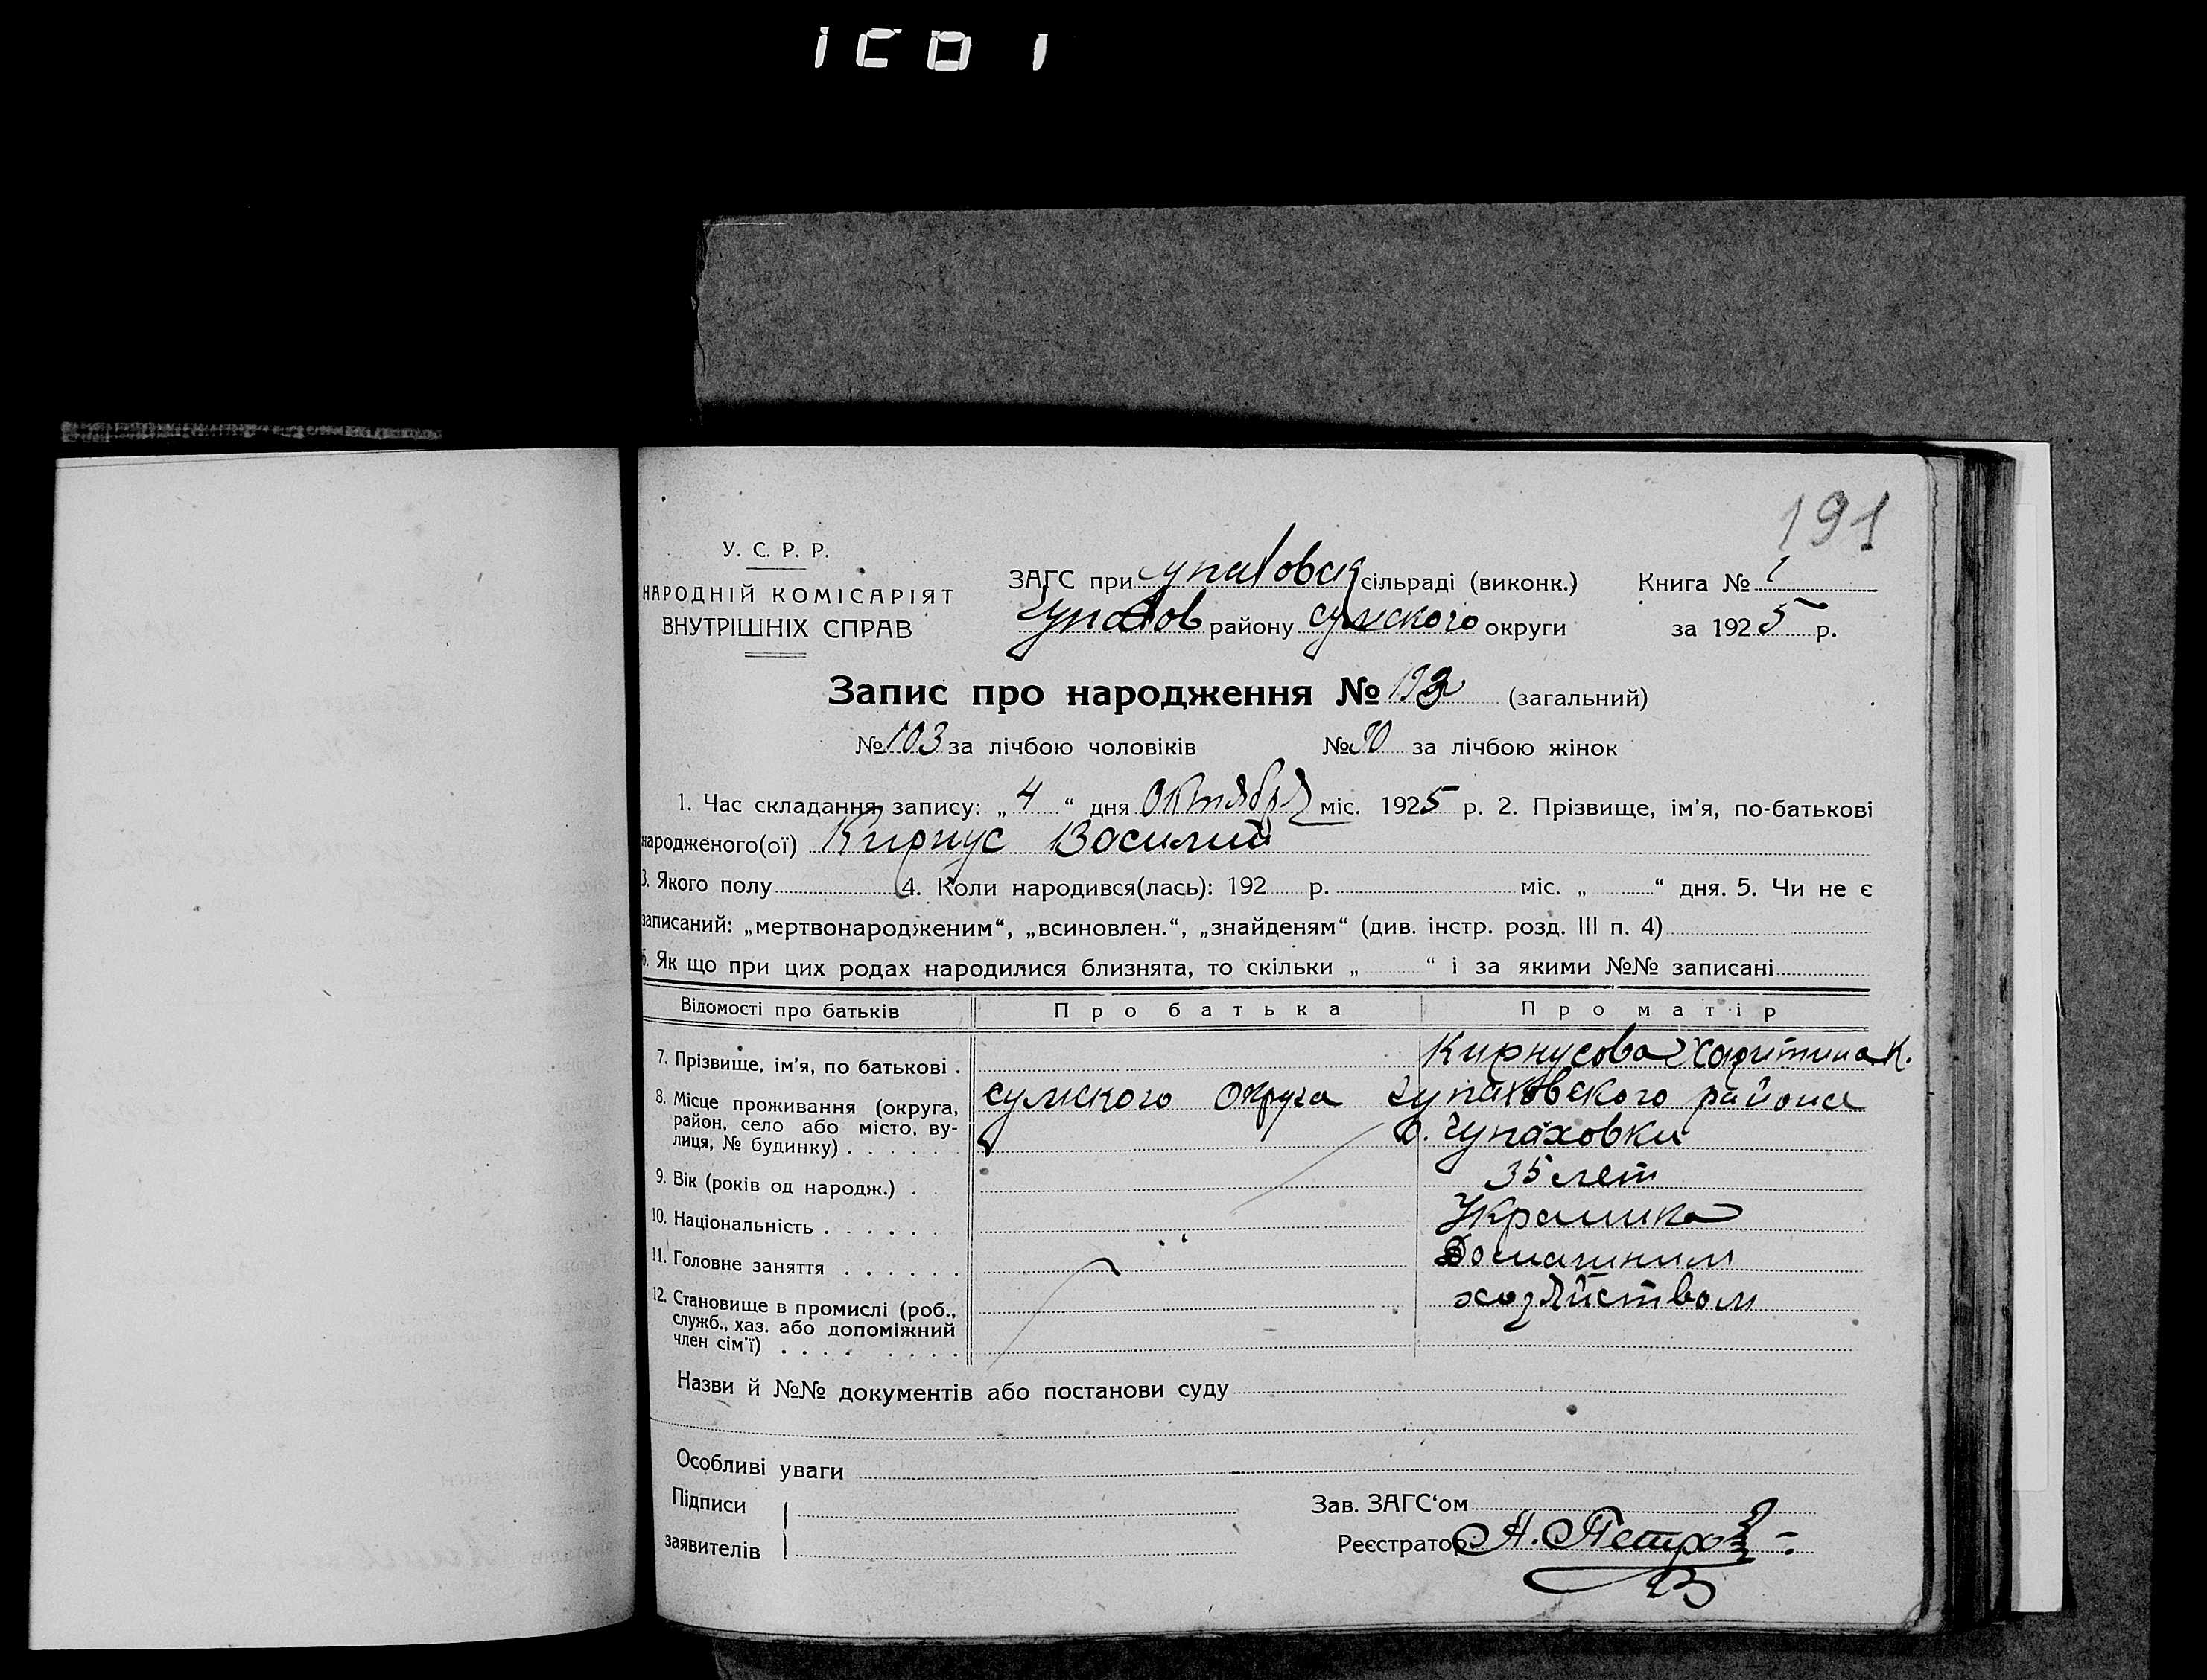 191
У. С. Р. Р.
НАРОДНІЙ КОМІСАРІЯТ
ВНУТРІШНІХ СПРАВ
ЗАГС при сільраді (виконк.) Книга № 1
району сумского округи за 1925 р.
Запис про народження № (загальний)
№ 103 за лічбою чоловіків № 90 за лічбою жінок
1. Час складання запису: „ 4 “ дня Октября міс. 1925 р. 2. Прізвище, ім'я, по-батькові
народженого(ої) Кирнус Василий
3. Якого полу 4. Коли народився(лась): 192 р. міс. „ “ дня. 5. Чи не є
записаний: „мертвонародженим“, „всиновлен.“, „знайденям“ (див. інстр. розд. III п. 4)
6. Як що при цих родах народилися близнята, то скільки „ “ і за якими №№ записані
Відомості про батьків Про батька Про матір
7. Прізвище, ім'я, по батькові . Кирнусова Харитина К.
8. Місце проживання (округа, сумского Округа Чупаховского района
район, село або місто, ву- с. Чупаховки
лиця, № будинку) . . . . . .
9. Вік (років од народж.) . 35 лет
10. Національність . . . . . . Украинка
11. Головне заняття . . . . . . Домашним
12. Становище в промислі (роб., хозяйством
служб., хаз. або допоміжний
член сім'ї) . . . . . . . . .
Назви й №№ документів або постанови суду
Особливі уваги
Підписи
заявителів
Зав. ЗАГС'ом
Реєстратор А. Петров